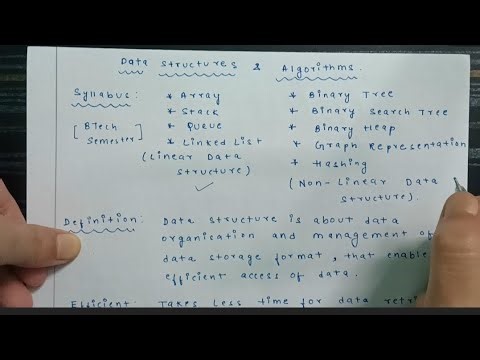 Data Structures & Algorithms.
Syllabus: * Array * Binary Tree
* Stack * Binary Search Tree
[BTech Semester] * Queue * Binary Heap
* Linked List * Graph Representation
(Linear Data Structure) * Hashing
✓ (Non-Linear Data Structure).
Definition: Data structure is about data
organisation and management of
data storage format, that enable
efficient access of data.
Efficient: Takes less time for data